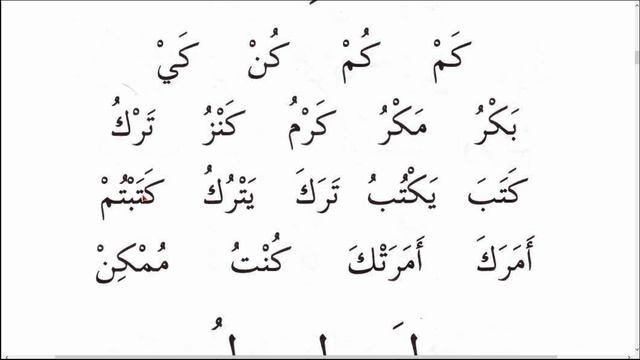 كَمْ كُمْ كُنْ كَيْ
بَكْرُ مَكْرُ كَرْمُ كَنْزُ تَرْكُ
كَتَبَ يَكْتُبُ تَرَكَ يَتْرُكُ كَتَبْتُمْ
أَمَرَكَ أَمَرَتْكَ كُنْتُ مُمْكِنْ